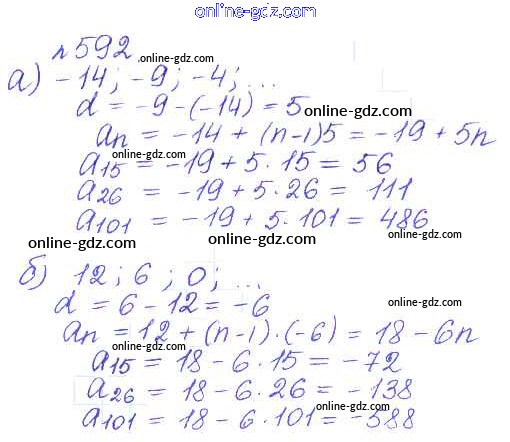 online-gdz.com
№592
online-gdz.com
а) -14; -9; -4; ...
d = -9 - (-14) = 5
online-gdz.com
an = -14 + (n-1)5 = -19 + 5n
online-gdz.com
a15 = -19 + 5·15 = 56
online-gdz.com
a26 = -19 + 5·26 = 111
a101 = -19 + 5·101 = 486
online-gdz.com online-gdz.com
online-gdz.com
б) 12; 6; 0; ...
online-gdz.com
d = 6 - 12 = -6
online-gdz.com
an = 12 + (n-1)·(-6) = 18 - 6n
online-gdz.com
a15 = 18 - 6·15 = -72
online-gdz.com
a26 = 18 - 6·26 = -138
online-gdz.com
a101 = 18 - 6·101 = -588
online-gdz.com